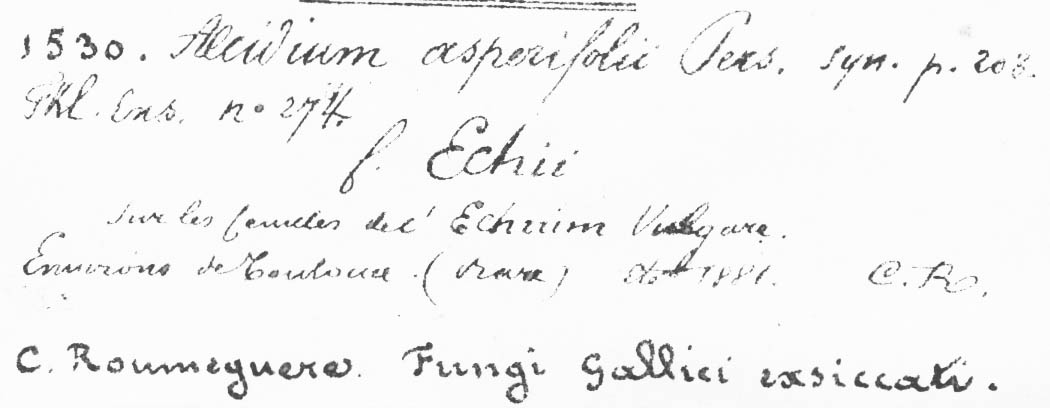 1530. Aecidium asperifolii Pers. Syn. p. 208.
Exs. n° 274.
f. Echii
sur les feuilles de l' Echium Vulgare.
Environs de Toulouse. (rare) 1881. C. R.
C. Roumeguere. Fungi Gallici exsiccati.